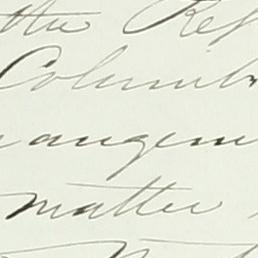 the Rep
Columb
angem
matter